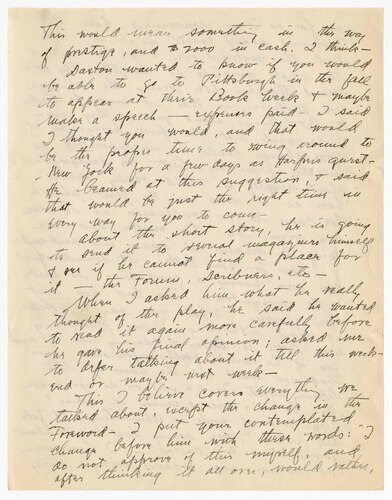 This would mean something in the way
of prestige, and $2000 in cash, I think -
Saxton wanted to know if you would
be able to go to Pittsburgh in the fall
to appear at their Book Week & maybe
make a speech — expenses paid - I said
I thought you would, and that would
be the proper time to swing around to
New York for a few days as Harpers guest -
He beamed at this suggestion, & said
that would be just the right time in
every way for you to come -
About the short story, he is going
to send it to several magazines himself
& see if he cannot find a place for
it — the Forum, Scribners, etc -
When I asked him what he really
thought of the play, he said he wanted
to read it again more carefully before
he gave his final opinion; asked me
to defer talking about it till this week-
end or maybe next week -
This I believe covers everything we
talked about, except the change in the
Foreword - I put your contemplated
change before him with these words: "I
do not approve of this myself, and,
after thinking it all over, would rather,